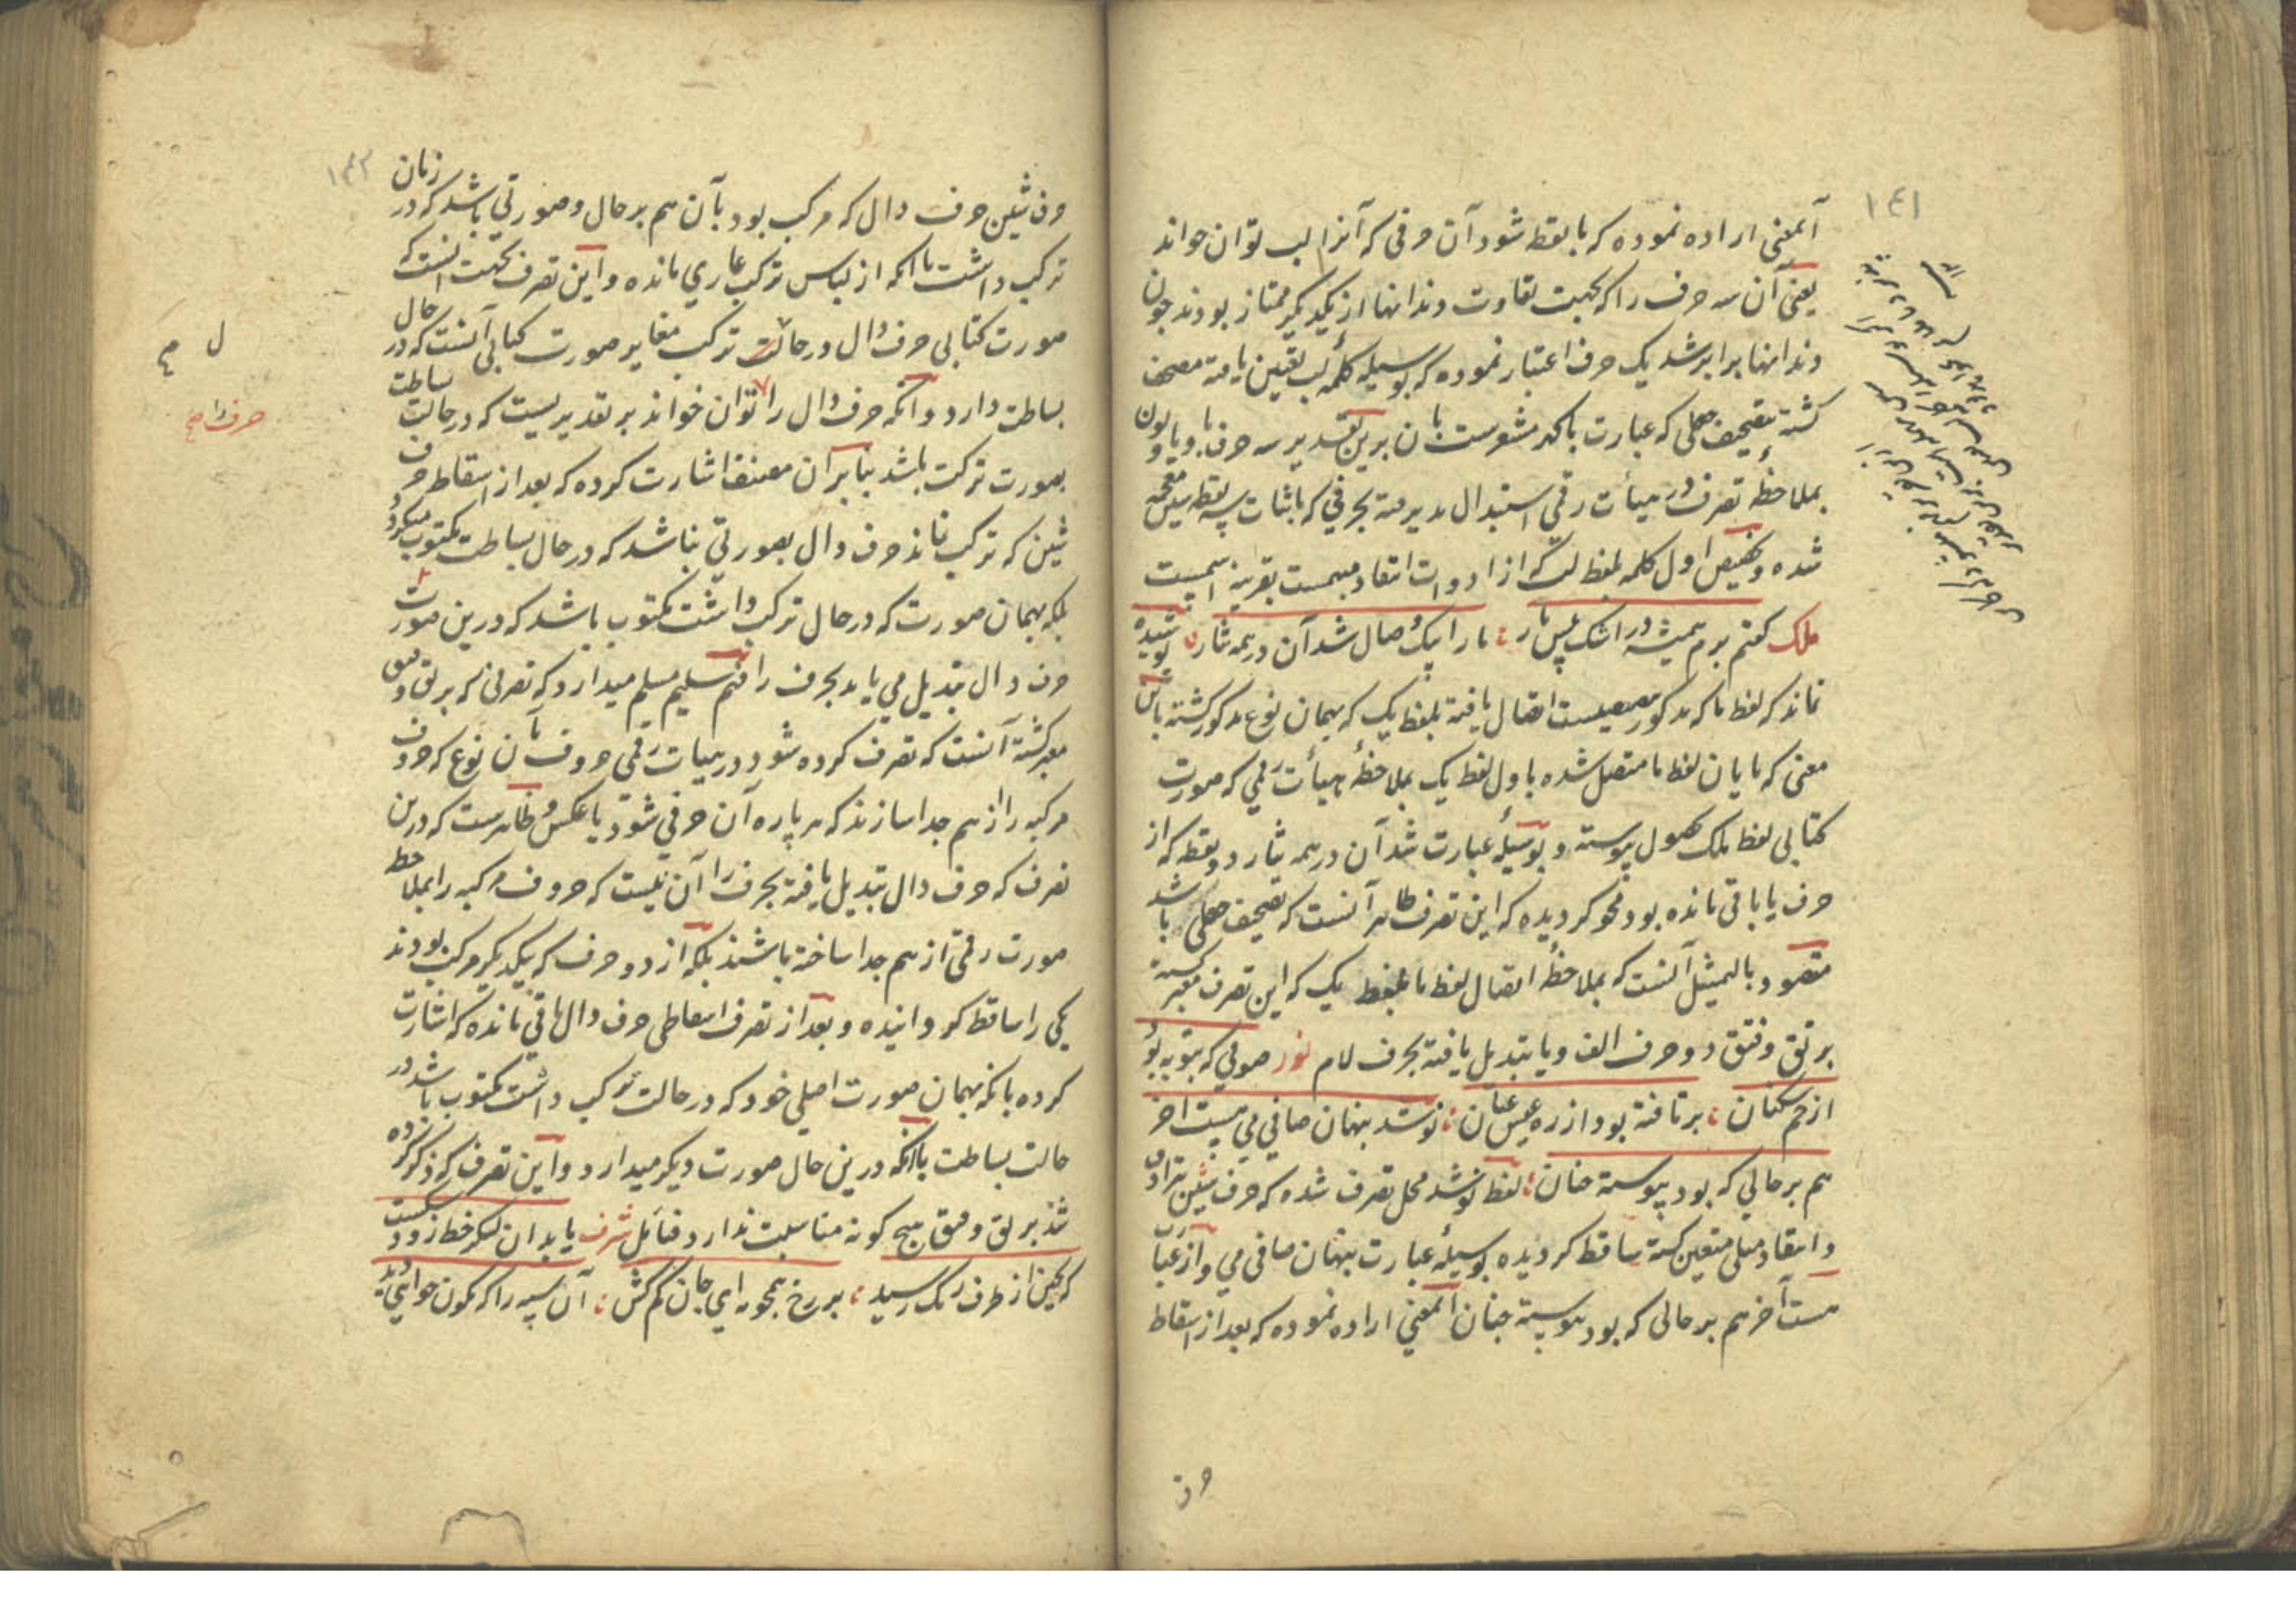 ١٤١
آنمعنی اراده نموده که با نقط شود آن حرفی که آنرا لب توان خواند
یعنی آن سه حرف را که بجهت تفاوت دندانها از یکدیگر ممتاز بودند چون
دندانها برابر شد یک حرف اعتبار نموده که بوسیله کلمه لب تعین یافته مصحف
کشته بتصحیف جعلی که عبارت باکد مشعرست بآن برین تقدیر سه حرف با و یا و نون
بملاحظه تصرف در هیأت رقمی استبدال پذیرفته بحرفی که باثبات سه نقطه شین معجمه
شده و تخصیص اول کلمه لفظ لب که از ادوات انتقاد مبهمست بقرینه اسمیت
ملک گفتم برم همیشه در اشک پس بار ؛ ما را پیک وصال شد آن در همه نثار ؛ پوشیده
نماند که لفظ ما که مذکور اتصال یافته بلفظ یک که بهمان نوع مذکور کشته باین
معنی که پایان لفظ ما متصل شده باول لفظ یک بملاحظه هیأت رقمی که صورت
کتابی لفظ ملک بحصول پیوسته و بوسیله عبارت شد آن در همه نثار دو نقطه که از
حرف یا باقی مانده بود محو گردیده که این تصرف ظاهر آنست که تصحیف جعلی باشد
مقصود بالتمثیل آنست که بملاحظه اتصال لفظ ما بلفظ یک که این تصرف معبر کشته
برتق و فتق دو حرف الف و یا تبدیل یافته بحرف لام نور صوفی که بتوبه بود
از خم سکنان ؛ برتافته بود از ره عیش عنان ؛ نوشد بنهان صافی می مست آخر
هم بر حالی که بود پیوسته چنان ؛ لفظ نوشد محل تصرف شده که حرف شین
و انتقاد مثلی متعین کشته ساقط گردیده بوسیله عبارت بنهان صافی می و از عبارت
مست آخر هم بر حالی که بود پیوسته چنان آنمعنی اراده نموده که بعد از اسقاط
حرف
١٤٢
حرف شین حرف دال که مرکب بود بآن هم بر حال و صورتی باشد که در زمان
ترکیب داشت با آنکه از لباس ترکیب عاری مانده و این تصرف بجهت آنست که
صورت کتابی حرف دال در حالت ترکیب مغایر صورت کتابی آنست که در حال
بساطت دارد و آنکه حرف دال را توان خواند بر تقدیریست که در حالت بساطت
بصورت ترکیب باشد بنابر آن مصنف اشارت کرده که بعد از اسقاط حرف
شین که ترکیب نماند حرف دال بصورتی نباشد که در حال بساطت مکتوب میگردد
بلکه بهمان صورت که در حال ترکیب داشت مکتوب باشد که درین صورت
حرف دال تبدیل می یابد بحرف را فهم سلیم مسلم میدارد که تصرفی که برتق و فتق
معبر کشته آنست که تصرف کرده شود در هیات رقمی حروف بآن نوع که حروف
مرکبه را از هم جدا سازند که هر پاره آن حرفی شود یا عکس و ظاهرست که درین
تصرف که حرف دال تبدیل یافته بحرف را آن نیست که حروف مرکبه را بملاحظه
صورت رقمی از هم جدا ساخته باشند بلکه از دو حرف که بیکدیگر مرکب بودند
یکی را ساقط گردانیده و بعد از تصرف اسقاطی حرف دال باقی مانده که اشارت
کرده بانکه بهمان صورت اصلی خود که در حالت ترکیب داشت مکتوب باشد در
حالت بساطت بآنکه درین حال صورت دیگر میدارد و این تصرف که ذکر کرده
شد برتق و فتق هیچ گونه مناسبت ندارد فتأمل شرف یابد آن لشکر خط زود شکست
که بچین از طرف ملک رسید ؛ بر رخ همچو مه ای جان کم کش ؛ آن سپه را که کمون
ل
حرف را صح